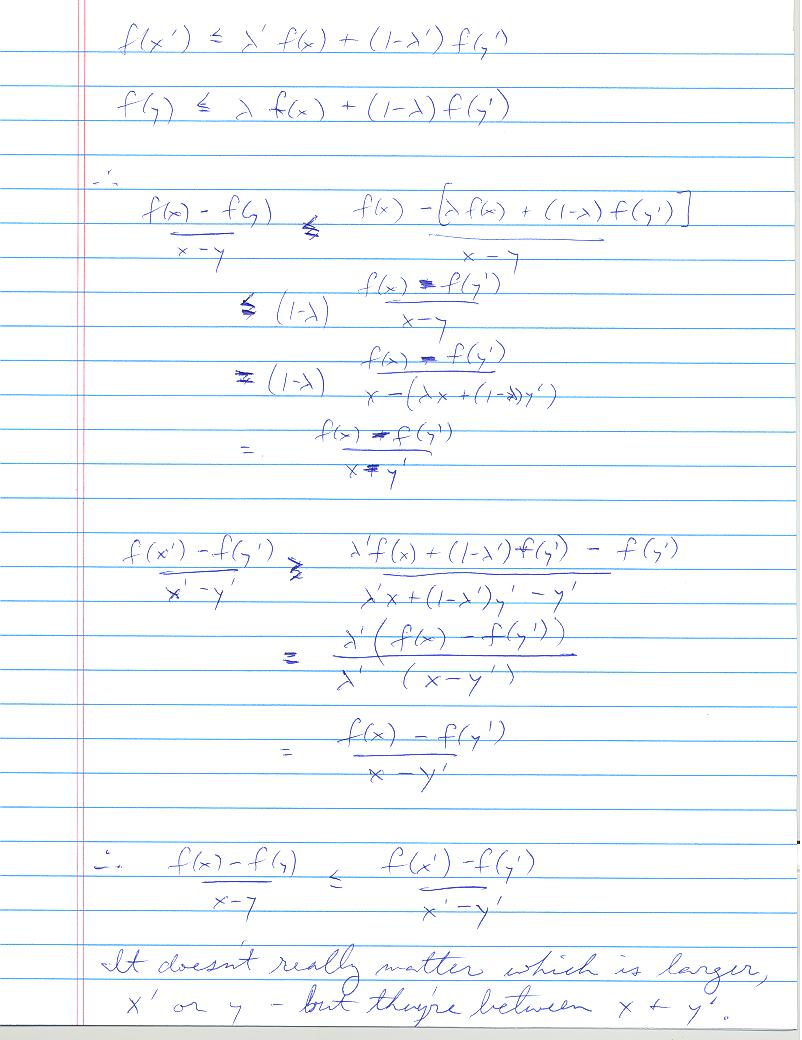 f(x') ≤ λ' f(x) + (1-λ') f(y')
f(y) ≤ λ f(x) + (1-λ) f(y')
∴
(f(x) - f(y))/(x-y) ≤ (f(x) - [λf(x) + (1-λ) f(y')])/(x-y)
≤ (1-λ) (f(x) - f(y'))/(x-y)
= (1-λ) (f(x) - f(y'))/(x-(λx+(1-λ)y'))
= (f(x) - f(y'))/(x-y')
(f(x') - f(y'))/(x'-y') ≥ (λ'f(x) + (1-λ')f(y') - f(y'))/(λ'x+(1-λ')y'-y')
= (λ'(f(x) - f(y')))/(λ'(x-y'))
= (f(x) - f(y'))/(x-y')
∴ (f(x) - f(y))/(x-y) ≤ (f(x') - f(y'))/(x'-y')
It doesn't really matter which is larger,
x' or y - but they're between x + y'.